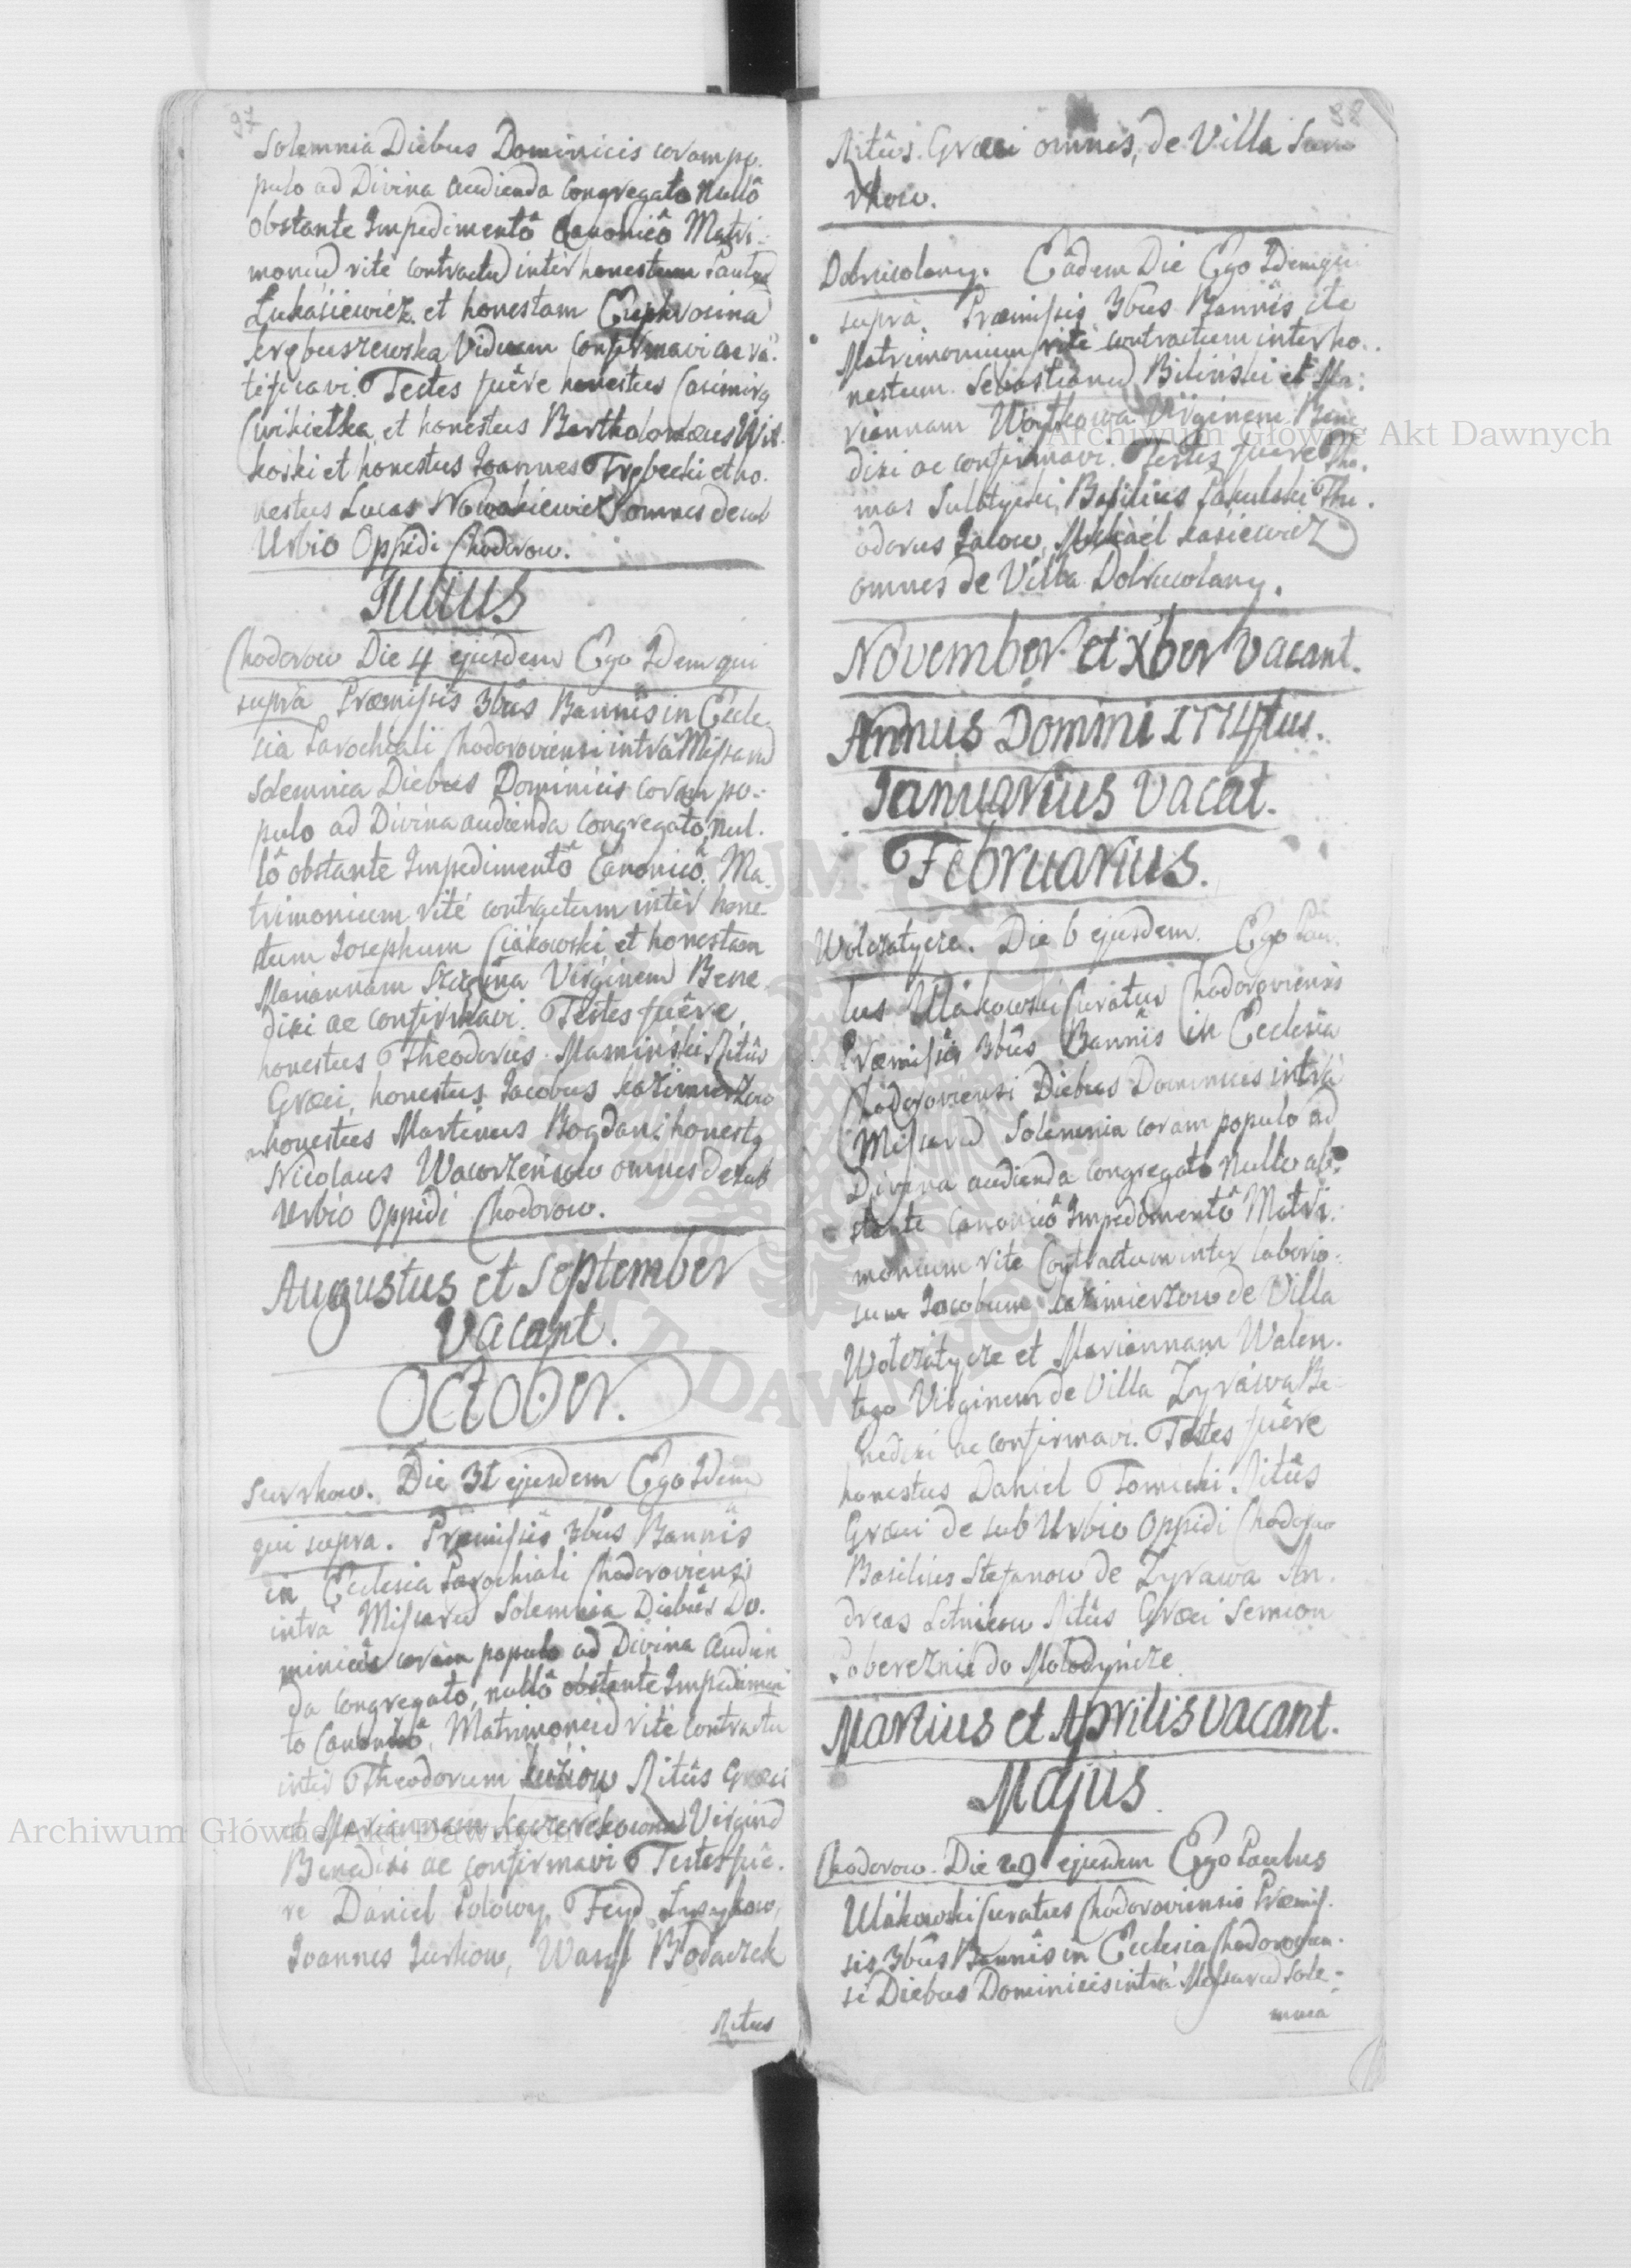 97
Solemnia Diebus Dominicis coram po-
pulo ad Divina audienda congregato Nullô
obstante Impedimentô Canonicô Matri-
monium rite contractum inter honestum Paulum
Łukasiewicz et honestam Euphrosina
Viduam Confirmavi ac ra-
tificavi. Testes fuêre honestus Casimirus
et honestus Bartholomæus Wit-
koski et honestus Joannes Trębecki et ho-
nestus Lucas Nowakiewicz omnes de sub
Urbio Oppidi Chodorow.
Julius
Chodorow Die 4 ejusdem Ego Idem qui
supra Præmissis 3bus Bannis in Eccle-
sia Parochiali Chodoroviensi intra Missarum
Solemnia Diebus Dominicis coram po-
pulo ad Divina audienda Congregato, nul-
lô obstante Impedimentô Canonicô, Ma-
trimonium rité contractum inter hone-
stum Josephum Ciąkowski et honestam
Mariannam Virginem Bene
dixi ac confirmavi. Testes fuêre,
honestus Theodorus Masminski Ritûs
Græci, honestus Jacobus Kazimierzow
honestus Martinus Bogdan, honestus
Nicolaus Waworzeńcow omnes de sub
Urbio Oppidi Chodorow.
Augustus et September
Vacant.
October.
Surrhow. Die 31 ejusdem Ego Idem
qui supra. Præmissis 3bus Bannis
in Ecclesia Parochiali Chodoroviensi
intra Missarum Solemnia Diebûs Do-
minicis coram populo ad Divina audien
da congregato, nullô obstante Impedimen
to Canonicô, Matrimonium rité contractu
inter Theodorum Ritûs Græci
et Mariannam Virginem
Benedixi ac confirmavi Testes fuê-
re Daniel Polowy, Feyd
Joannes Jurkow, Wasyl Bodaczek
Ritus
98
Ritûs Græci omnes, de Villa Surr
rhow.
Dobrucolany. Eâdem Die Ego Idem qui
supra. Præmissis 3bus Bannis ite
Matrimonium rité contractum inter ho-
nestum Sebastianum Bilinski et Ma-
riannam Woytkowa Virginem Bene
dixi ac confirmavi. Testes fuere Tho-
mas Basilius Thé-
odorus Jacow, Michaél Kasiewicz
omnes de Villa Dobrucolany.
November et Xber Vacant.
Annus Domini 1774tus.
Januarius Vacat.
Februarius.
Wolczatycze. Die 6 ejusdem. Ego Pau-
lus Ulákowski Curatus Chodoroviensis
Præmissis 3bûs Bannis in Ecclesia
Chodoroviensi Diebus Dominicis intra
Missarum Solemnia coram populo ad
Divina audienda congregato Nullo ob-
stante Canonicô Impedimentô Matri-
monium rite Contractum inter laborio-
sum Jacobum Kazimierzow de Villa
Wolczatycze et Mariannam Walen-
tego Virginem de Villa Zyráwa Be-
nedixi ac confirmavi. Testes fuêre
honestus Daniel Tomicki Ritûs
Græci de sub Urbio Oppidi Chodorow
Basilius Stefanow de Zyrawa An-
dreas Letnicow Ritûs Græci Semion
Pobereznik do Mołodyńcze.
Martius et Aprilis vacant.
Majus
Chodorow. Die 29 ejusdem Ego Paulus
Ulákowski Curatus Chodoroviensis Præmis-
sis 3bûs Bannis in Ecclesia Chodorovien-
si Diebus Dominicis intrá Missarum Sole-
mnia
Archiwum Główne Akt Dawnych
Archiwum Główne Akt Dawnych